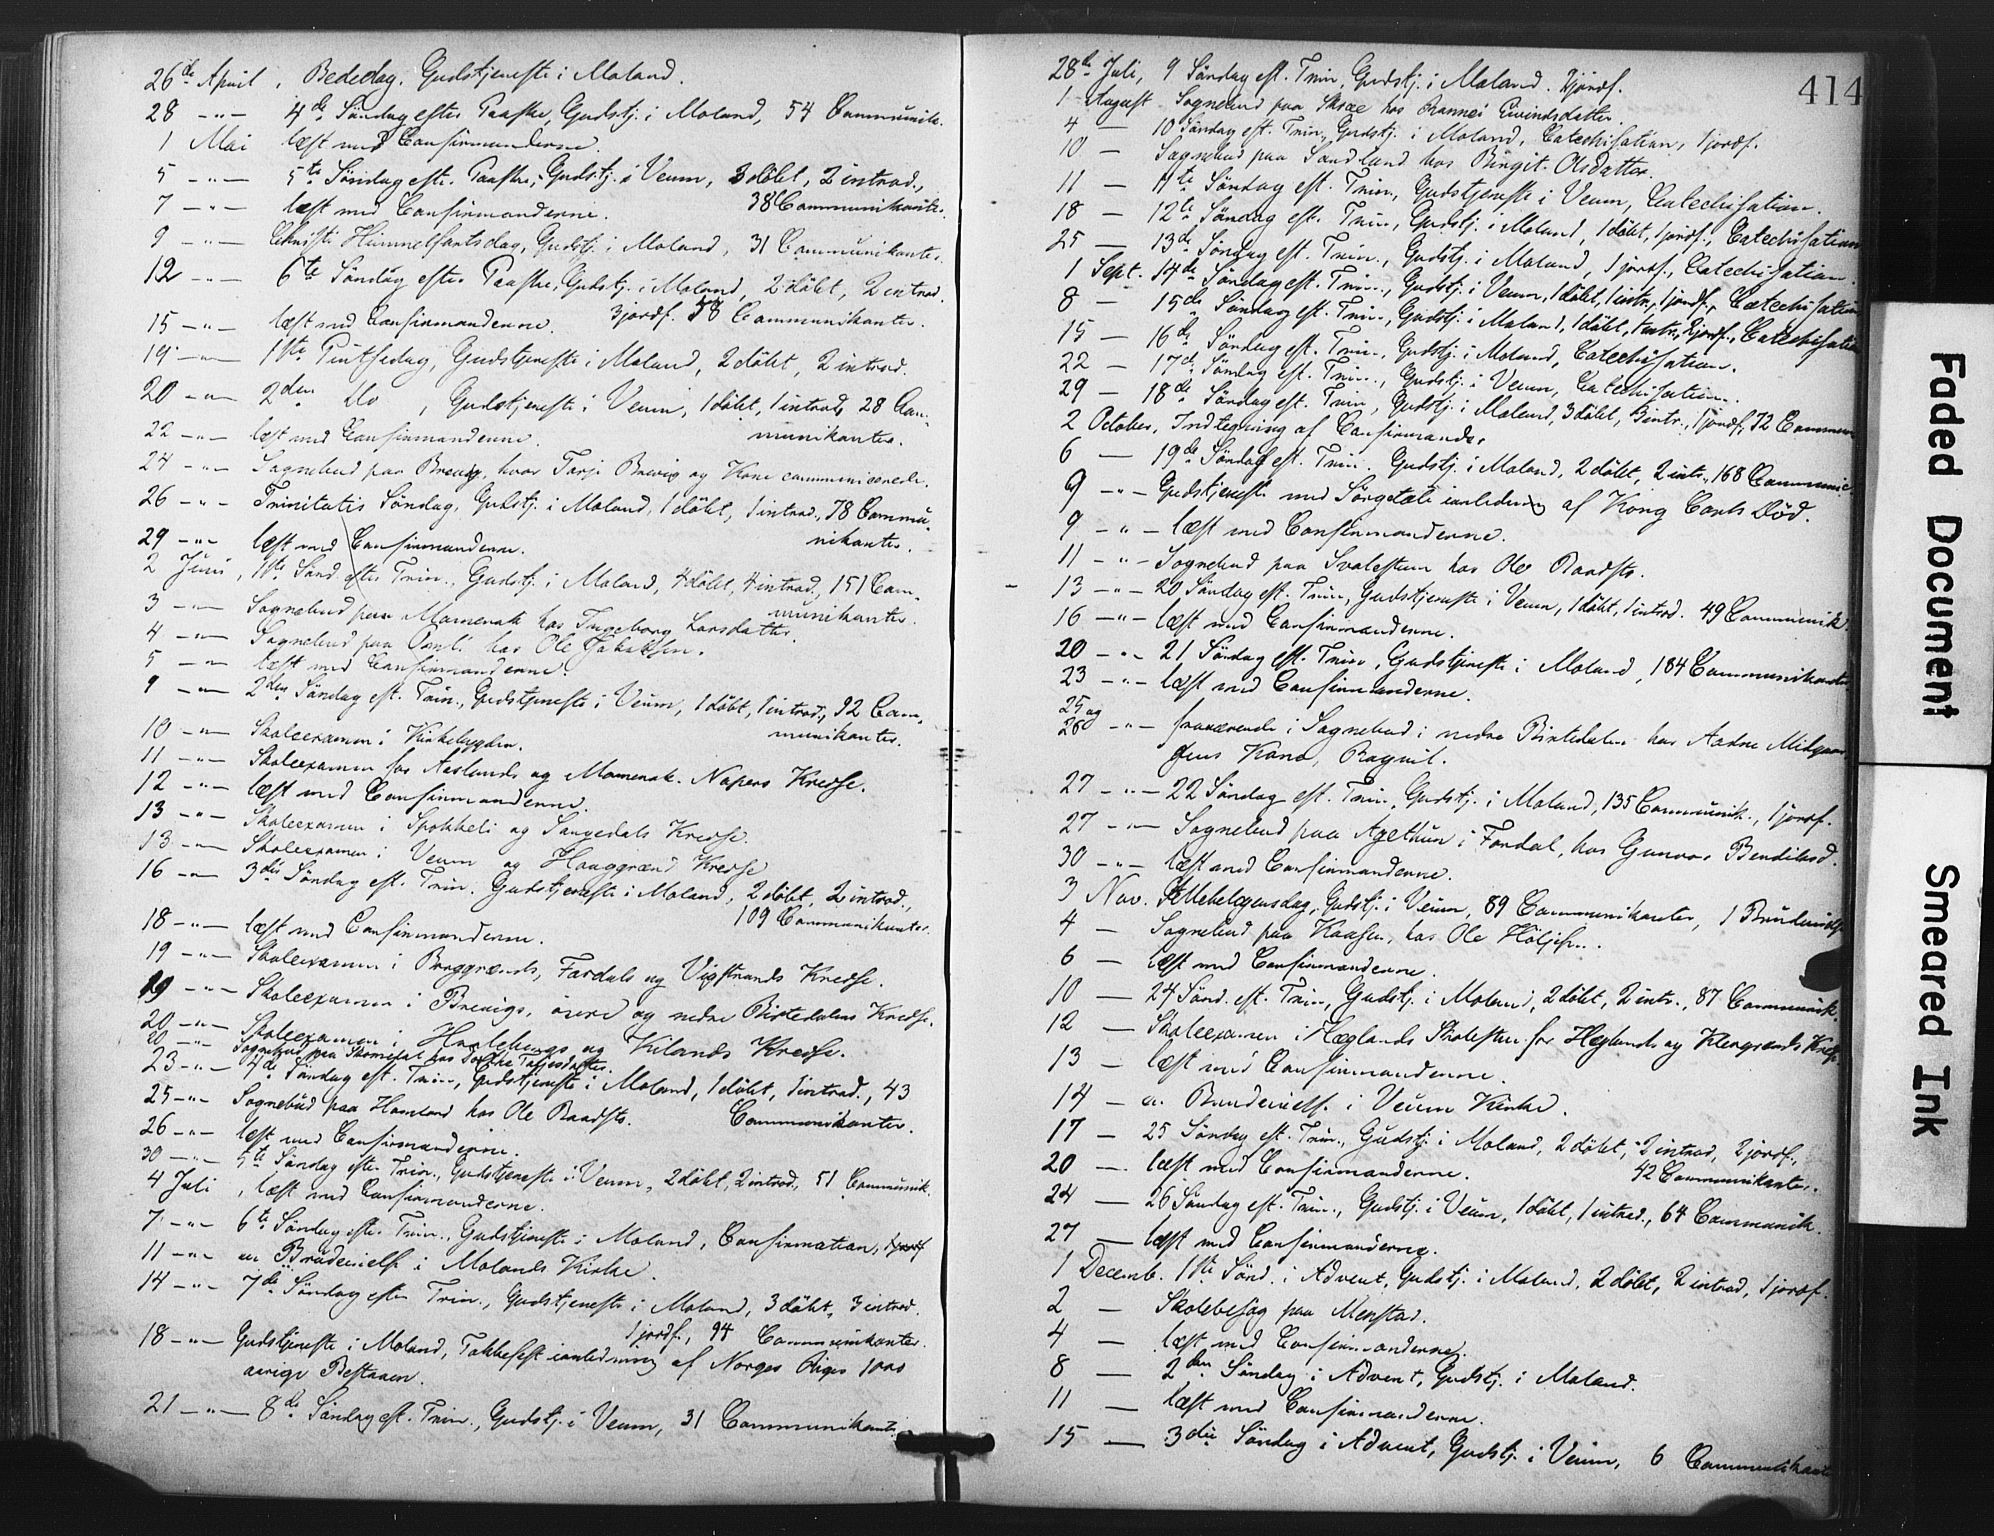 26de April, Bededag, Gudstjeneste i Moland.
28 -"- 4de Søndag efter Paaske, Gudstj. i Moland, 54 Communik.
1 Mai læst med Confirmanderne.
5 -"- 5te Søndag efter Paaske, Gudstj. i Veum, 3 døbt, 2 introd.,
38 Communikanter.
7 -"- læst med Confirmanderne.
9 -"- Christi Himmelfartsdag, Gudstj. i Moland, 31 Communikanter.
12 -"- 6te Søndag efter Paaske, Gudstj. i Moland, 2 døbt, 2 introd.
3 jordf. 58 Communikanter.
15 -"- læst med Confirmanderne.
19 -"- 1ste Pintsedag, Gudstjeneste i Moland, 2 døbt, 2 introd.
20 -"- 2den Do, Gudstjeneste i Veum, 1 døbt, 1 introd, 28 Com-
munikanter.
22 -"- læst med Confirmanderne.
24 -"- Sognebud paa Brevig, hvor Tarje Brevig og Kone communicerede.
26 -"- Trinitatis Søndag, Gudstj. i Moland, 1 døbt, 1 introd., 78 Commu-
nikanter.
29 -"- læst med Confirmanderne.
2 Juni, 1ste Sønd. efter Trin., Gudstj. i Moland, 4 døbt, 4 introd., 151 Com-
munikanter.
3 -"- Sognebud paa Momenak hos Ingeborg Larsdatter.
4 -"- Sognebud paa Omli hos Ole Jakobsen.
5 -"- læst med Confirmanderne.
9 -"- 2den Søndag eft. Trin., Gudstjeneste i Veum, 1 døbt, 1 introd., 92 Com-
munikanter.
10 -"- Skoleexamen i Kirkebygden.
11 -"- Skoleexamen for Aaslands og Momenak-Napers Kredse.
12 -"- læst med Confirmanderne.
13 -"- Skoleexamen i Spokkeli og Saugedals Kredse.
13 -"- Skoleexamen i Veum og Hauggrænd Kredse
16 -"- 3die Søndag eft. Trin. Gudstjeneste i Moland, 2 døbt, 2 introd.,
109 Communikanter.
18 -"- læst med Confirmanderne.
19 -"- Skoleexamen i Borggrænds, Fardals og Vigstrands Kredse.
19 -"- Skoleexamen i Brevigs, øvre og nedre Birtedalens Kredse.
20 -"- Skoleexamen i og Kilands Kredse.
20 -"- Sognebud paa hos Tarjesdatter.
23 -"- 4de Søndag eft. Trin., Gudstjeneste i Moland, 1 døbt, 1 introd., 43
Communikanter.
25 -"- Sognebud paa Hamland hos Ole Baardsen.
26 -"- læst med Confirmanderne.
30 -"- 5te Søndag efter Trin., Gudstjeneste i Veum, 2 døbt, 2 introd., 51 Communik.
4 Juli, læst med Confirmanderne.
7 -"- 6te Søndag efter Trin., Gudstjeneste i Moland, Confirmation, 1 jordf
11 -"- en Brudevielse i Molands Kirke.
14 -"- 7de Søndag efter Trin., Gudstjeneste i Moland, 3 døbt, 3 introd.
1 jordf., 94 Communikanter.
18 -"- Gudstjeneste i Moland, Takkefest i anledning af Norges Riges 1000
aarige Bestaaen.
21 -"- 8de Søndag eft. Trin., Gudstj. i Veum, 31 Communikanter
414
28de Juli, 9 Søndag eft. Trin, Gudstj. i Moland. 2 jordf.
1 August Sognebud paa Skree hos Eivindsdatter.
4 — 10 Søndag eft. Trin, Gudstj. i Moland, Catechisation, 1 jordf.
10 — Sognebud paa Sandland hos Birgit Olsdatter.
11 — 11te Søndag eft. Trin, Gudstjeneste i Veum, Catechisation.
18 — 12te Søndag eft. Trin, Gudstj. i Moland, 1 døbt, 1 jordf., Catechisation
25 — 13de Søndag eft. Trin., Gudstj. i Moland, 1 jordf., Catechisation.
1 Sept. 14de Søndag eft. Trin., Gudstj. i Veum, 1 døbt, 1 intr., 1 jordf., Catechisation
8 — 15de Søndag eft. Trin., Gudstj. i Moland, 1 døbt, 1 intr., 2 jordf., Catechisation
15 — 16de Søndag eft. Trin., Gudstj. i Moland, Catechisation.
22 — 17de Søndag eft. Trin., Gudstj. i Veum, Catechisation.
29 — 18de Søndag eft. Trin, Gudstj. i Moland, 3 døbt, 3 intr., 1 jordf., 72 Commun
2 October, Indtegning af Confirmander
6 — 19de Søndag eft. Trin. Gudstj. i Moland, 2 døbt, 2 intr., 168 Communic
9 -"- Gudstjeneste med Sørgetale i anledning af Kong Carls Død.
9 -"- læst med Confirmanderne.
11 -"- Sognebud paa Svalestuen hos Ole Baardsen.
13 -"- 20 Søndag eft. Trin, Gudstjeneste i Veum, 1 døbt, 1 introd. 49 Communik.
16 -"- læst med Confirmanderne.
20 -"- 21 Søndag eft. Trin, Gudstjeneste i Moland, 184 Communikanter
23 -"- læst med Confirmanderne.
25 og
26 -"- fraværende i Sognebud i nedre Birtedalen hos Aadne Midgaar-
dens Kone, Ragnil.
27 -"- 22 Søndag eft. Trin, Gudstj. i Moland, 135 Communik., 1 jordf.
27 -"- Sognebud paa i Fardal, hos Gunvor Bendiksd.
30 -"- læst med Confirmanderne.
3 Nov. Allehelgensdag, Gudstj. i Veum, 89 Communikanter, 1 Brudevielse
4 — Sognebud paa Kaasen, hos Ole Høljesen.
6 — læst med Confirmanderne.
10 — 24 Sønd. eft. Trin, Gudstj. i Moland, 2 døbt, 2 intr., 87 Communik.
12 — Skoleexamen i Høglands Skolestue for Høglands og Klengrænds Kreds
13 — læst med Confirmanderne.
14 — en Brudevielse i Veum Kirke.
17 — 25 Søndag eft. Trin., Gudstj. i Moland, 2 døbt, 2 introd, 2 jordf.,
42 Communikanter.
20 — læst med Confirmanderne.
24 — 26 Søndag eft. Trin., Gudstj. i Veum, 1 døbt, 1 introd., 64 Communik.
27 — læst med Confirmanderne.
1 Decemb. 1ste Sønd. i Advent, Gudstj. i Moland, 2 døbt, 2 introd, 1 jordf.
2 — Skolebesøg paa Menstad.
4 — læst med Confirmanderne.
8 — 2den Søndag i Advent, Gudstj. i Moland.
11 — læst med Confirmanderne.
15 — 3die Søndag i Advent, Gudstj. i Veum, 6 Communikanter
Faded Document
Smeared Ink